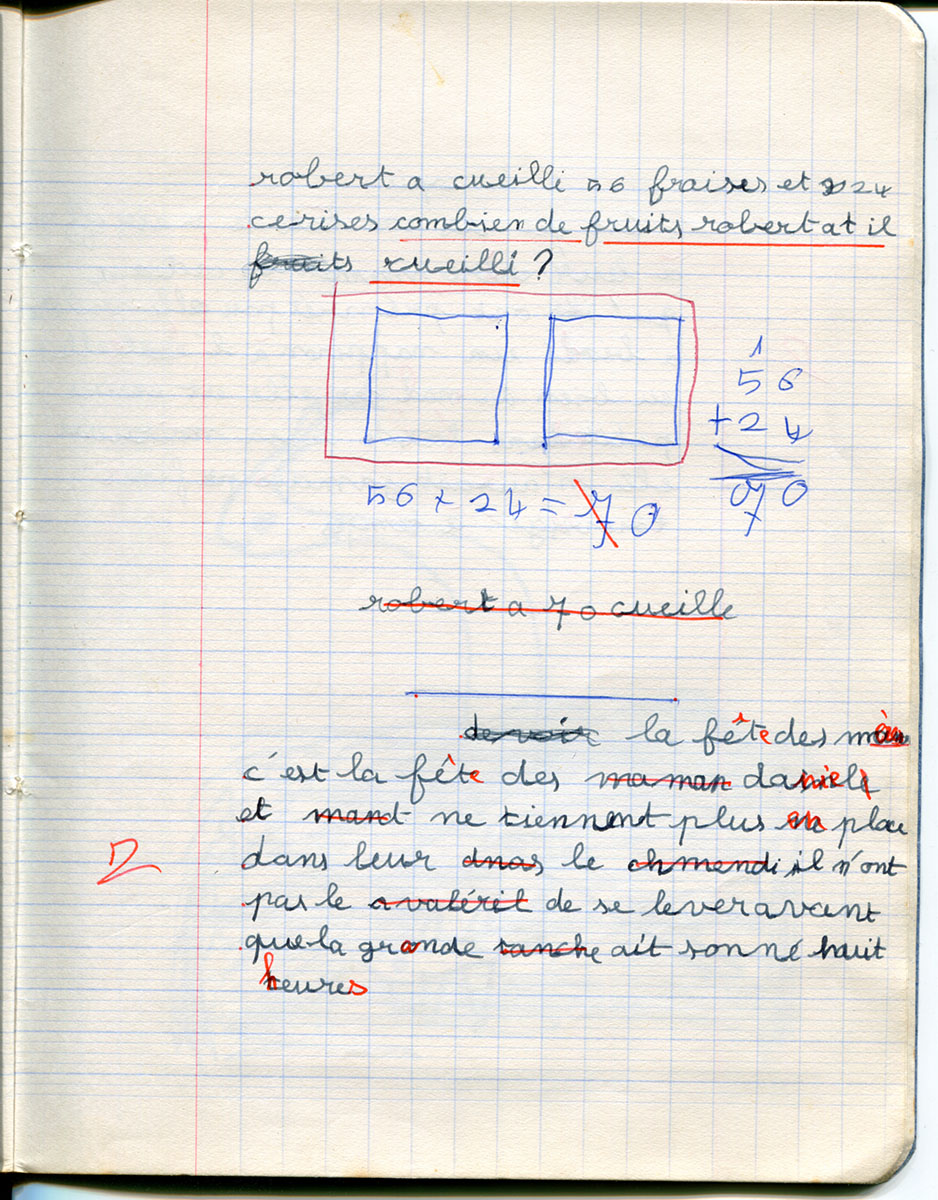 robert a cueilli 56 fraises et 24
cerises combien de fruits robert at il
fruits cueilli ?
1
56
+24
070
56 + 24 = 70
robert a 70 cueille
devoir la fête des
c'est la fête des maman daniel
et mand ne tiennent plus en place
dans leur dnas le chmendi il n'ont
pas le avalérit de se lever avant
que la grande sanche ait sonné huit
heures